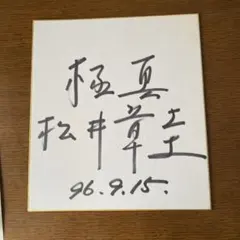 極真
松井章圭
96.9.15.